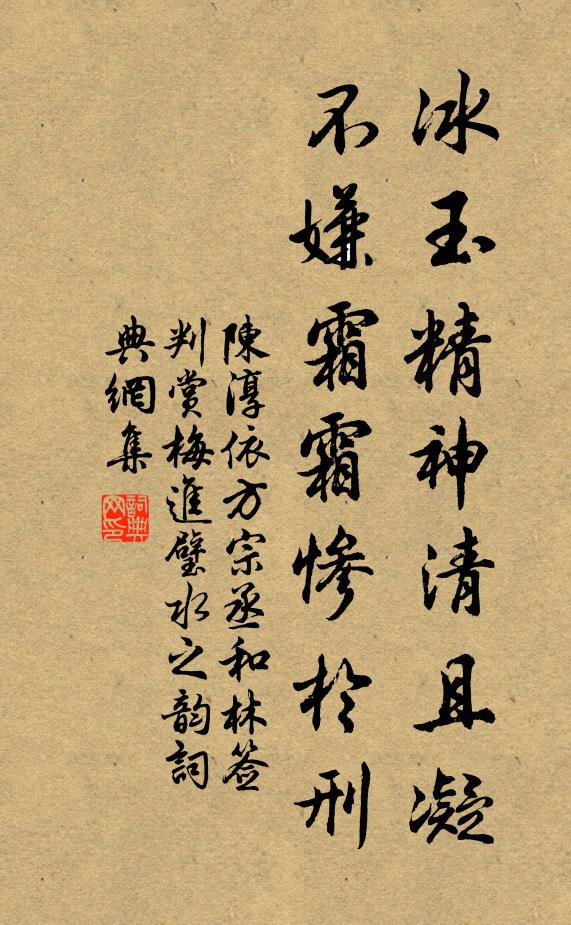 冰玉精神清且凝
不嫌霜霜慘於刑
陳淳依方宗丞和林簽
判賞梅進壁水之韵詞
典網集
詞典
网印